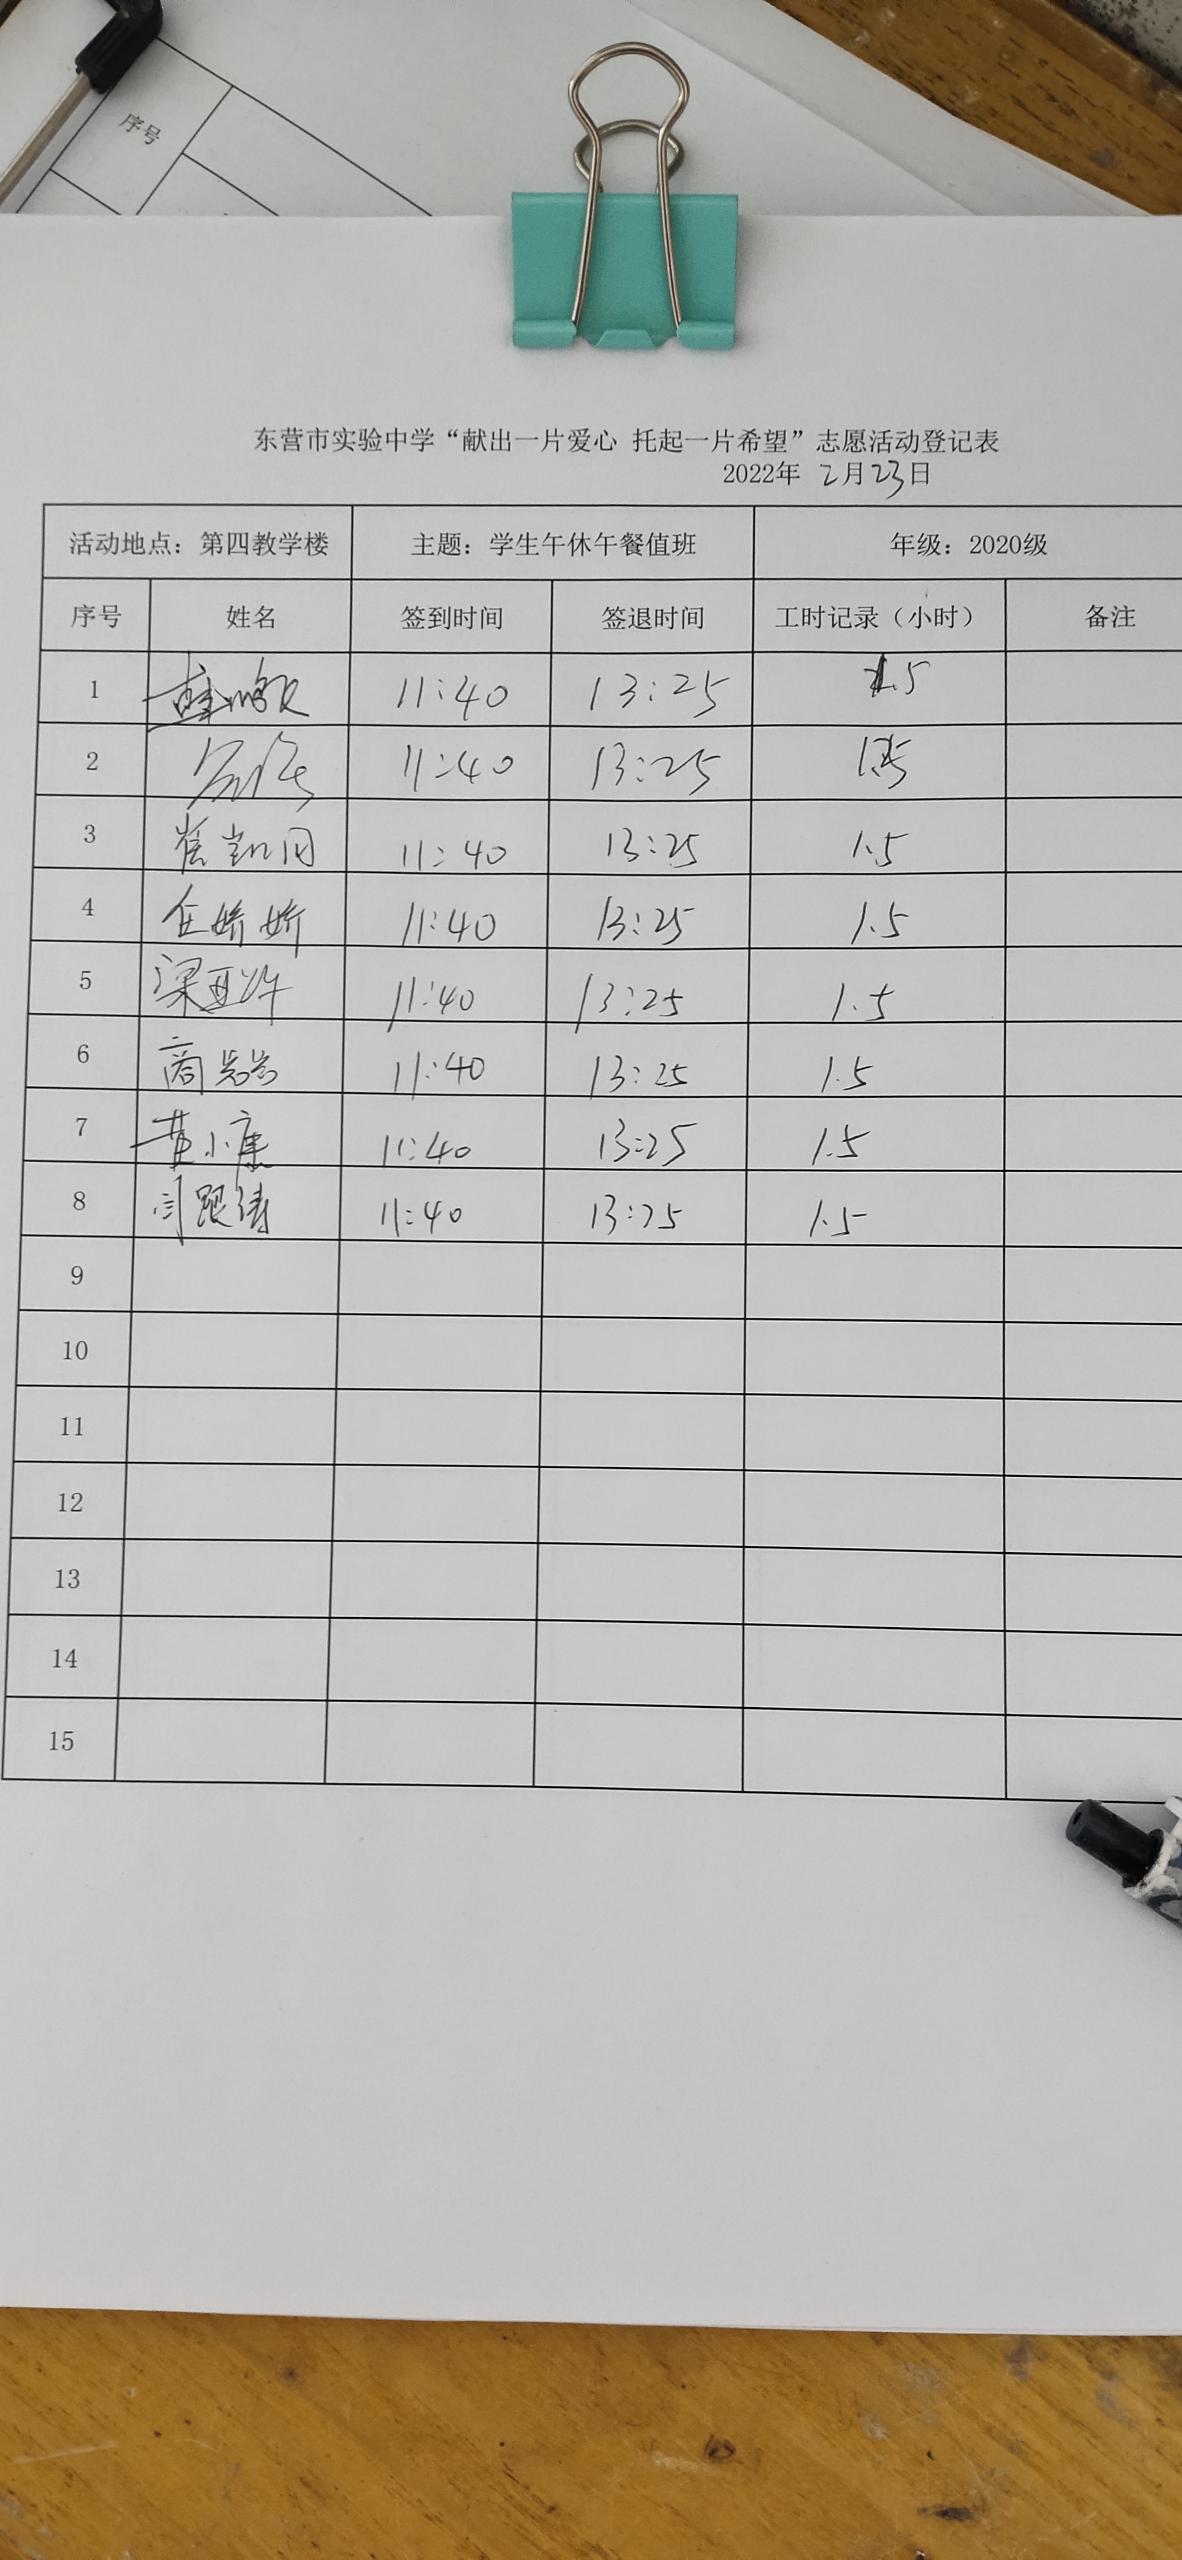 序号
东营市实验中学“献出一片爱心 托起一片希望”志愿活动登记表
2022年 2月23日
活动地点：第四教学楼 主题：学生午休午餐值班 年级：2020级
序号 姓名 签到时间 签退时间 工时记录（小时） 备注
1 11:40 13:25 1.5
2 11:40 13:25 1.5
3 11:40 13:25 1.5
4 任娇娇 11:40 13:25 1.5
5 11:40 13:25 1.5
6 11:40 13:25 1.5
7 黄小康 11:40 13:25 1.5
8 11:40 13:25 1.5
9
10
11
12
13
14
15